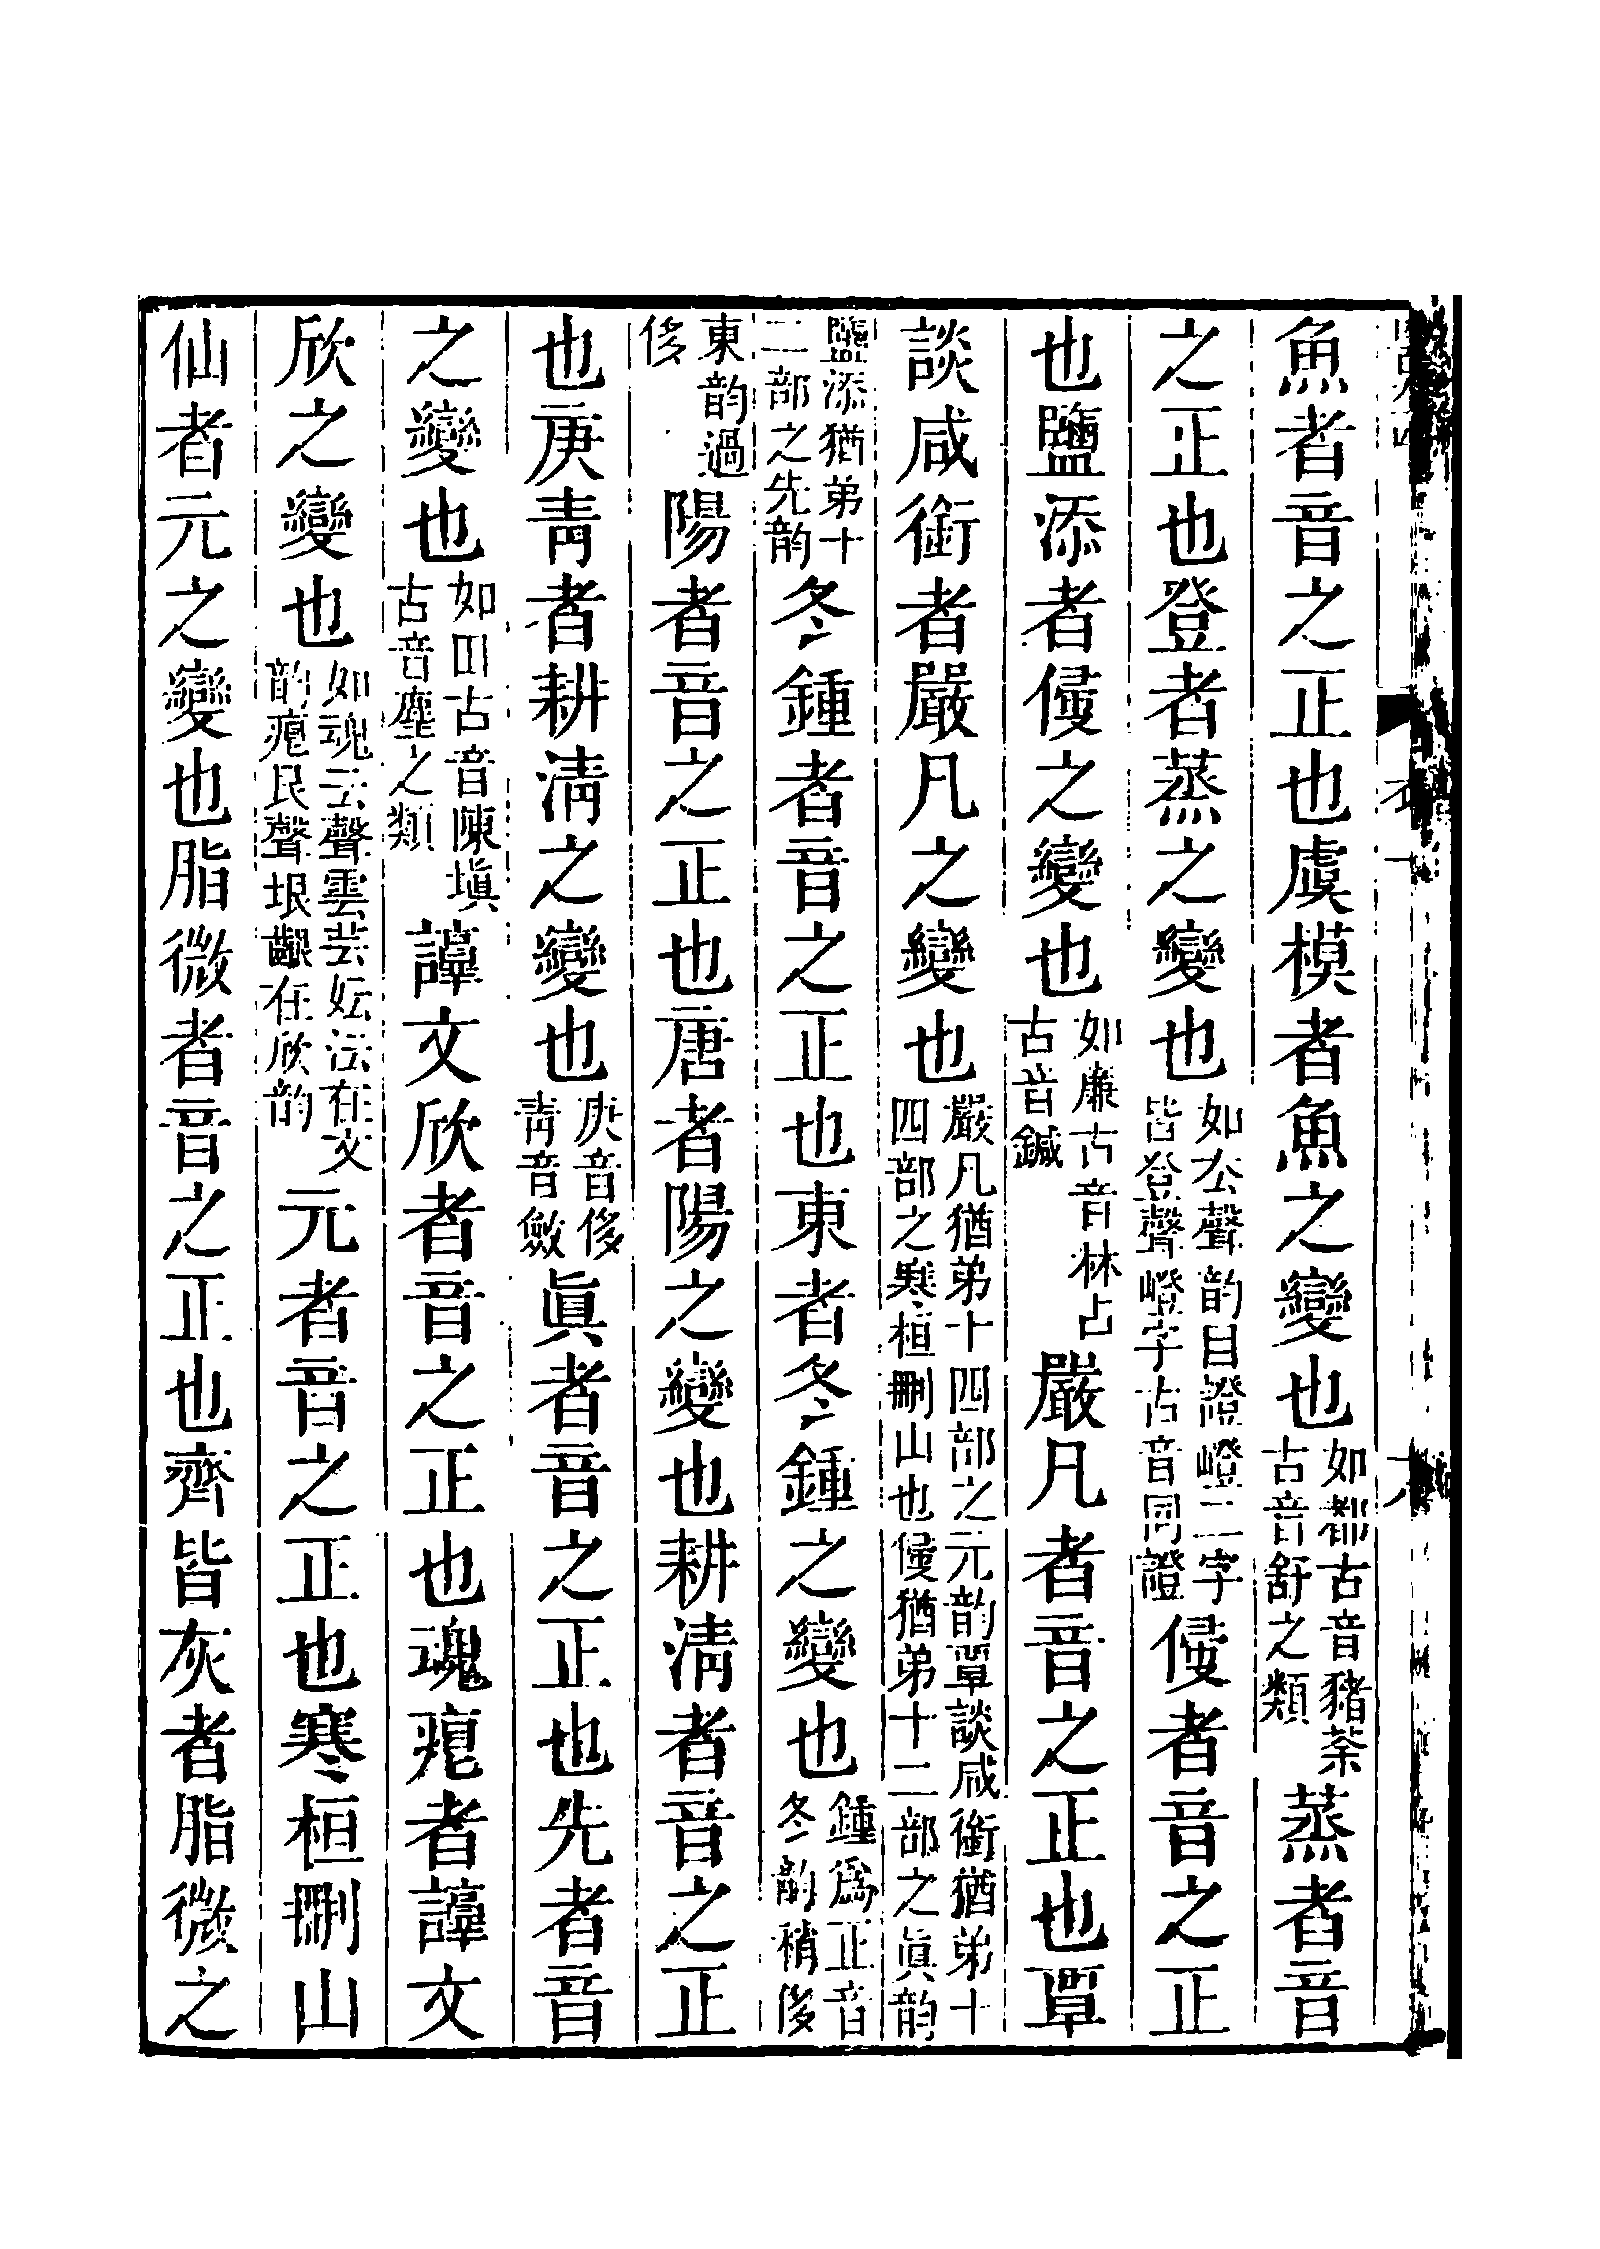 魚者音之正也虞模者魚之變也如都古音豬荼古音舒之類蒸者音
之正也登者蒸之變也如厷聲韵目證嶝二字皆登聲嶝字古音同證侵者音之正
也鹽添者侵之變也如廉古音林占古音鍼嚴凡者音之正也覃
談咸銜者嚴凡之變也嚴凡猶弟十四部之元韵覃談咸銜猶弟十四部之寒桓刪山也侵猶弟十二部之眞韵
鹽添猶弟十二部之先韵冬鍾者音之正也東者冬鍾之變也鍾爲正音冬韵稍侈
東韵過侈陽者音之正也唐者陽之變也耕淸者音之正
也庚靑者耕淸之變也庚音侈靑音斂眞者音之正也先者音
之變也如田古音陳塡古音塵之類諄文欣者音之正也魂痕者諄文
欣之變也如魂云聲雲芸妘沄在文韵痕艮聲垠齦在欣韵元者音之正也寒桓刪山
仙者元之變也脂微者音之正也齊皆灰者脂微之